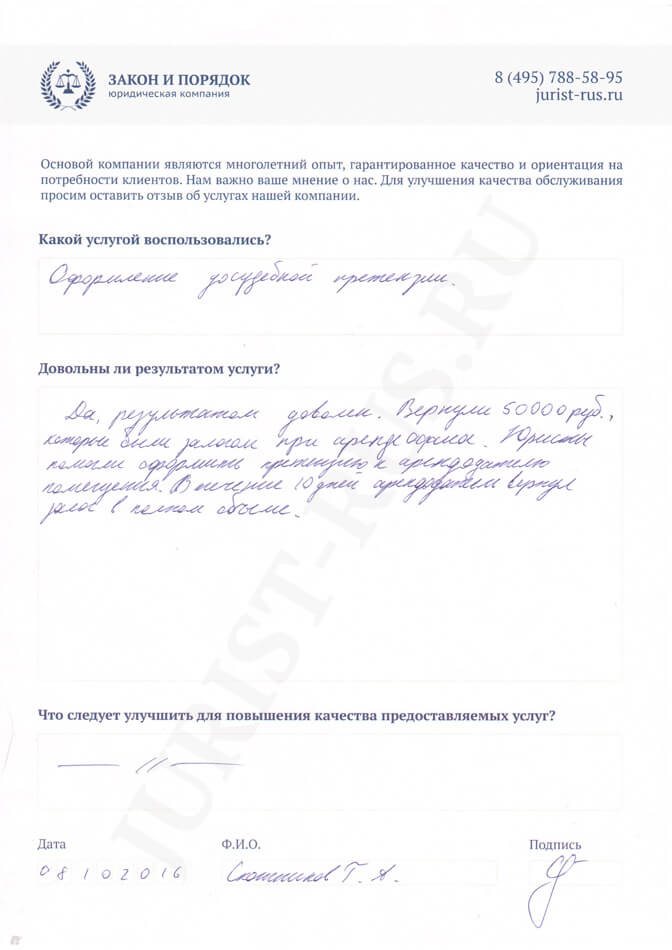 ЗАКОН И ПОРЯДОК
юридическая компания
8 (495) 788-58-95
jurist-rus.ru
Основой компании являются многолетний опыт, гарантированное качество и ориентация на
потребности клиентов. Нам важно ваше мнение о нас. Для улучшения качества обслуживания
просим оставить отзыв об услугах нашей компании.
Какой услугой воспользовались?
Оформление досудебной претензии.
Довольны ли результатом услуги?
Да, результатом доволен. Вернули 50000 руб.,
которые были залогом при аренде офиса. Юристы
помогли оформить претензию к арендодателю
помещения. В течение 10 дней арендодатель вернул
залог в полном объеме.
Что следует улучшить для повышения качества предоставляемых услуг?
— // —
Дата
Ф.И.О.
Подпись
08102016
Т. А.
JURIST-RUS.RU